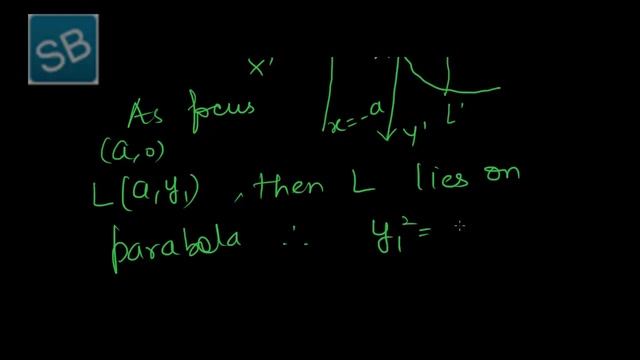 SB
X'
As focus
x=-a
Y'
L'
(a,0)
L(a,y₁), then L lies on
parabola ∴ y₁²=